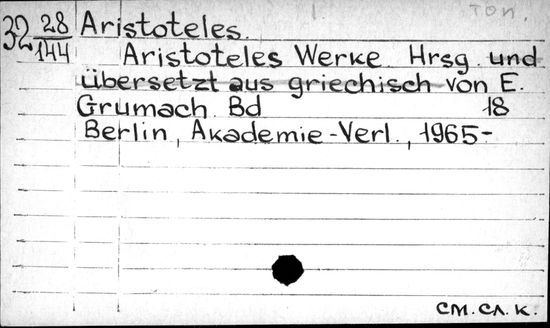 топ.
32 28/144 Aristoteles.
Aristoteles Werke. Hrsg. und
übersetzt aus griechisch von E.
Grumach. Bd 18
Berlin, Akademie-Verl., 1965-
см. сл. к.